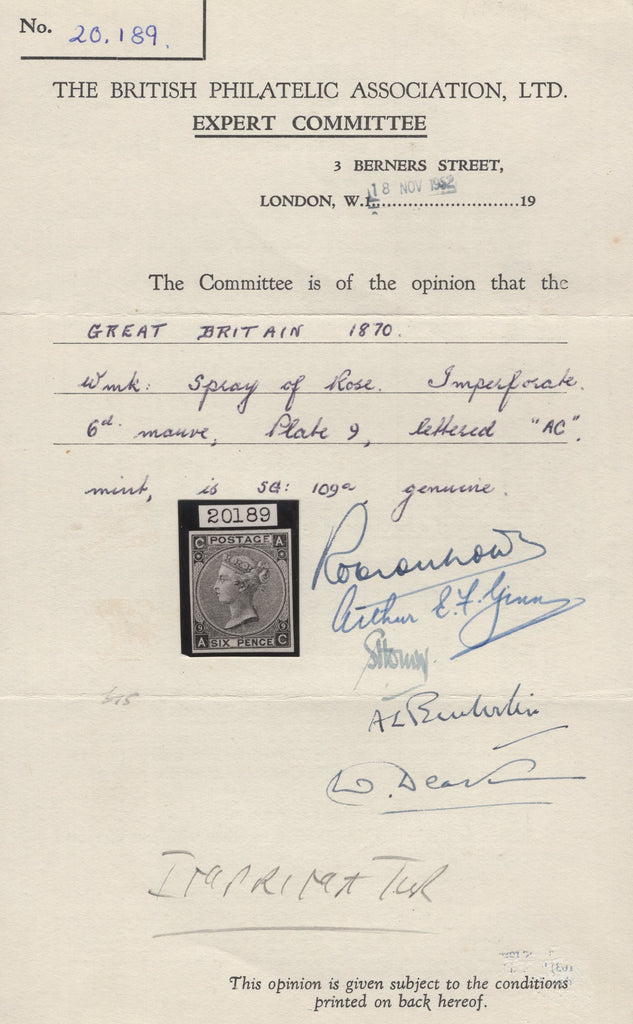 No. 20.189.
THE BRITISH PHILATELIC ASSOCIATION, LTD.
EXPERT COMMITTEE
3 BERNERS STREET,
18 NOV 1952
LONDON, W.1...........................19
The Committee is of the opinion that the
GREAT BRITAIN 1870.
Wmk: Spray of Rose. Imperforate.
6d. mauve, Plate 9, lettered "AC".
mint, is SG: 109a genuine.
20189
C POSTAGE A
9 9
A SIX PENCE C
Arthur E. F. Ginn
IMPRIMATUR
This opinion is given subject to the conditions
printed on back hereof.